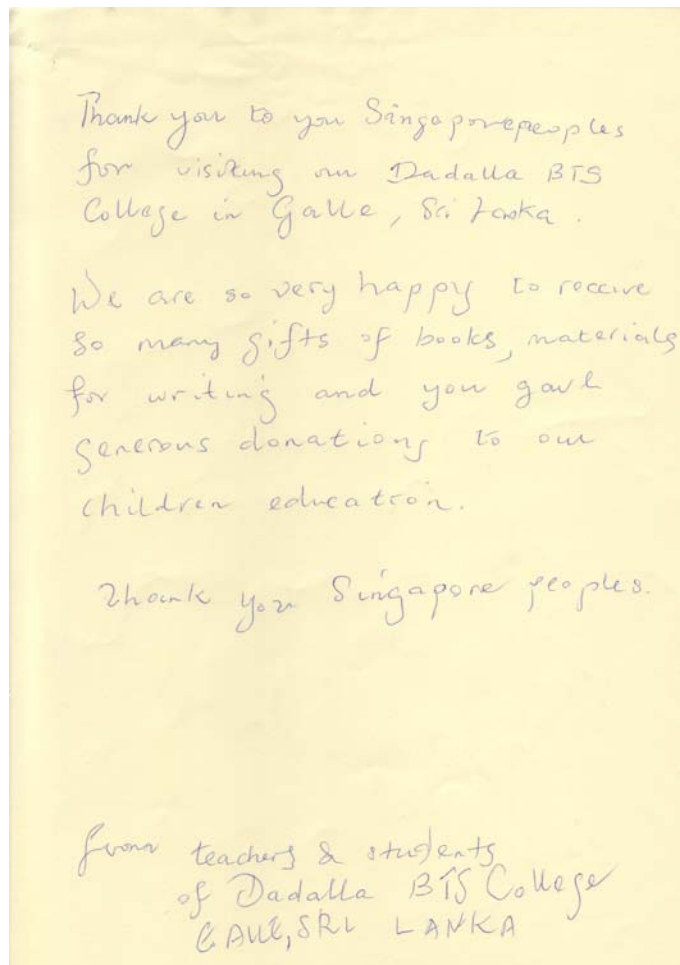 Thank you to you Singaporepeoples
for visiting our Dadalla BTS
College in Galle, Sri Lanka.
We are so very happy to receive
so many gifts of books, materials
for writing and you gave
generous donations to our
children education.
Thank you Singapore peoples.
from teachers & students
of Dadalla BTS College
GALLE, SRI LANKA